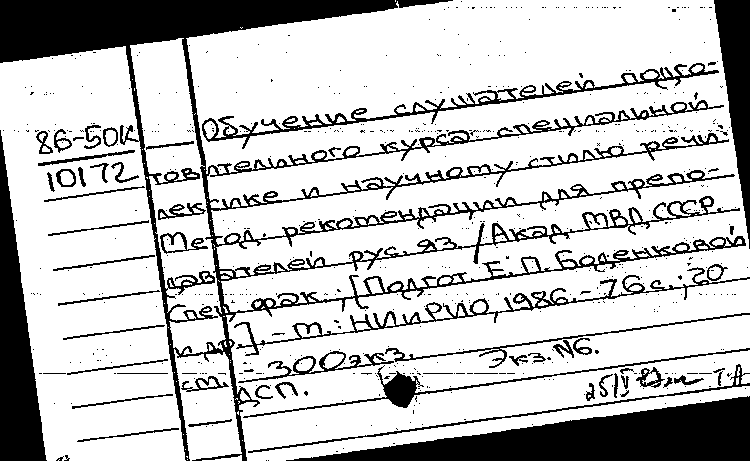 86-50К
10172
Обучение слушателей подго-
товительного курса специальной
лексике и научному стилю речи:
Метод. рекомендации для препо-
давателей рус. яз. / Акад. МВД СССР.
Спец. фак.; [Подгот. Е. П. Боденковой
и др.]. - М.: НИиРИО, 1986. - 76 с.; 20
см. - 300 экз. Экз. N6.
ДСП.